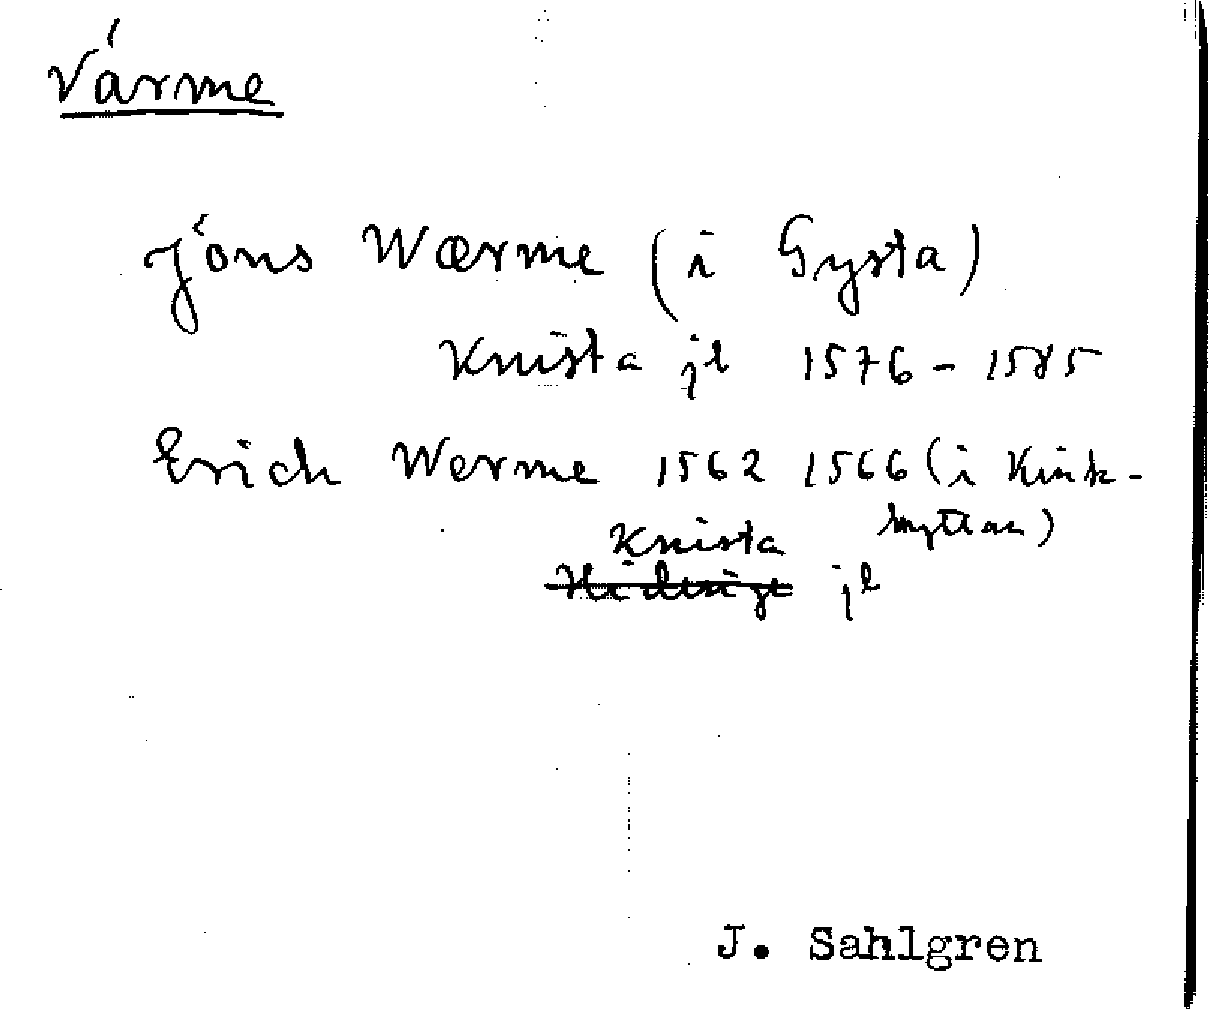 Värme
Jöns Wærme (i Gysta)
Knista jl 1576-1585
Erich Werme 1562 1566 (i Kink-
hyttan)
Knista
jl
J. Sahlgren